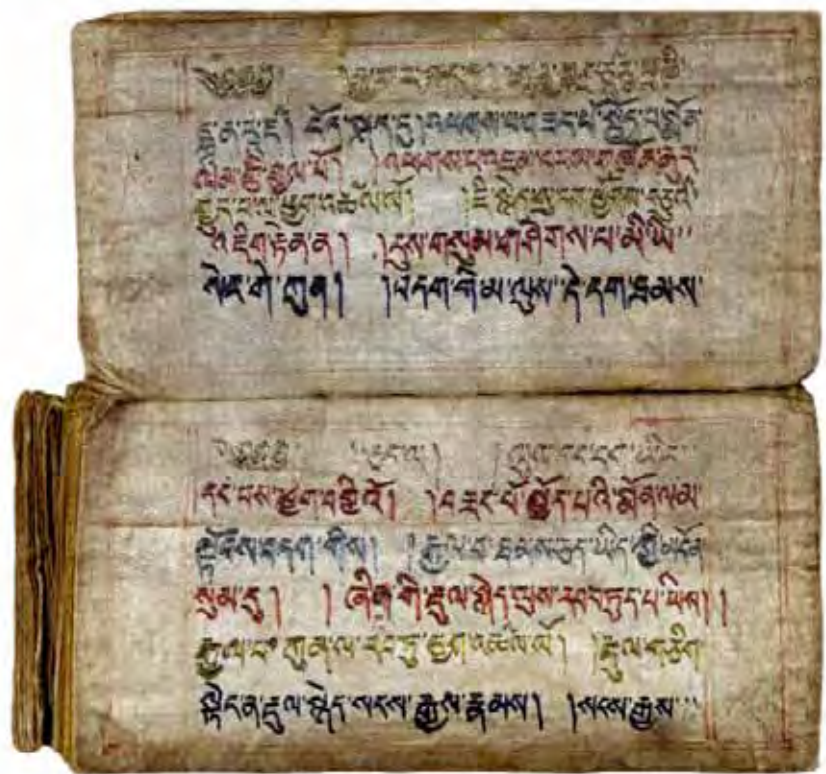 ༄༅༅། །རྒྱ་གར་སྐད་དུ།
བོད་སྐད་དུ། འཕགས་པ་བཟང་པོ་སྤྱོད་པ་སྨོན་
ལམ་རྒྱལ་པོ། །འཕགས་པ་འཇམ་དཔལ་གཞོན་ནུར་
གྱུར་པ་ལ་ཕྱག་འཚལ་ལོ། །ཇི་སྙེད་སུ་དག་ཕྱོགས་བཅུའི་
འཇིག་རྟེན་ན། །དུས་གསུམ་གཤེགས་པ་མི་ཡི་
སེང་གེ་ཀུན། །བདག་གིས་མ་ལུས་དེ་དག་ཐམས་
༄༅༅། །ཅད་ལ། །ལུས་དང་ངག་ཡིད་
དང་བས་ཕྱག་བགྱིའོ། །བཟང་པོ་སྤྱོད་པའི་སྨོན་ལམ་
སྟོབས་དག་གིས། །རྒྱལ་བ་ཐམས་ཅད་ཡིད་ཀྱི་མངོན་
སུམ་དུ། །ཞིང་གི་རྡུལ་སྙེད་ལུས་རབ་ཏུད་པ་ཡིས། །
རྒྱལ་བ་ཀུན་ལ་རབ་ཏུ་ཕྱག་འཚལ་ལོ། །རྡུལ་གཅིག་
སྟེང་ན་རྡུལ་སྙེད་སངས་རྒྱས་རྣམས། །སངས་རྒྱས་